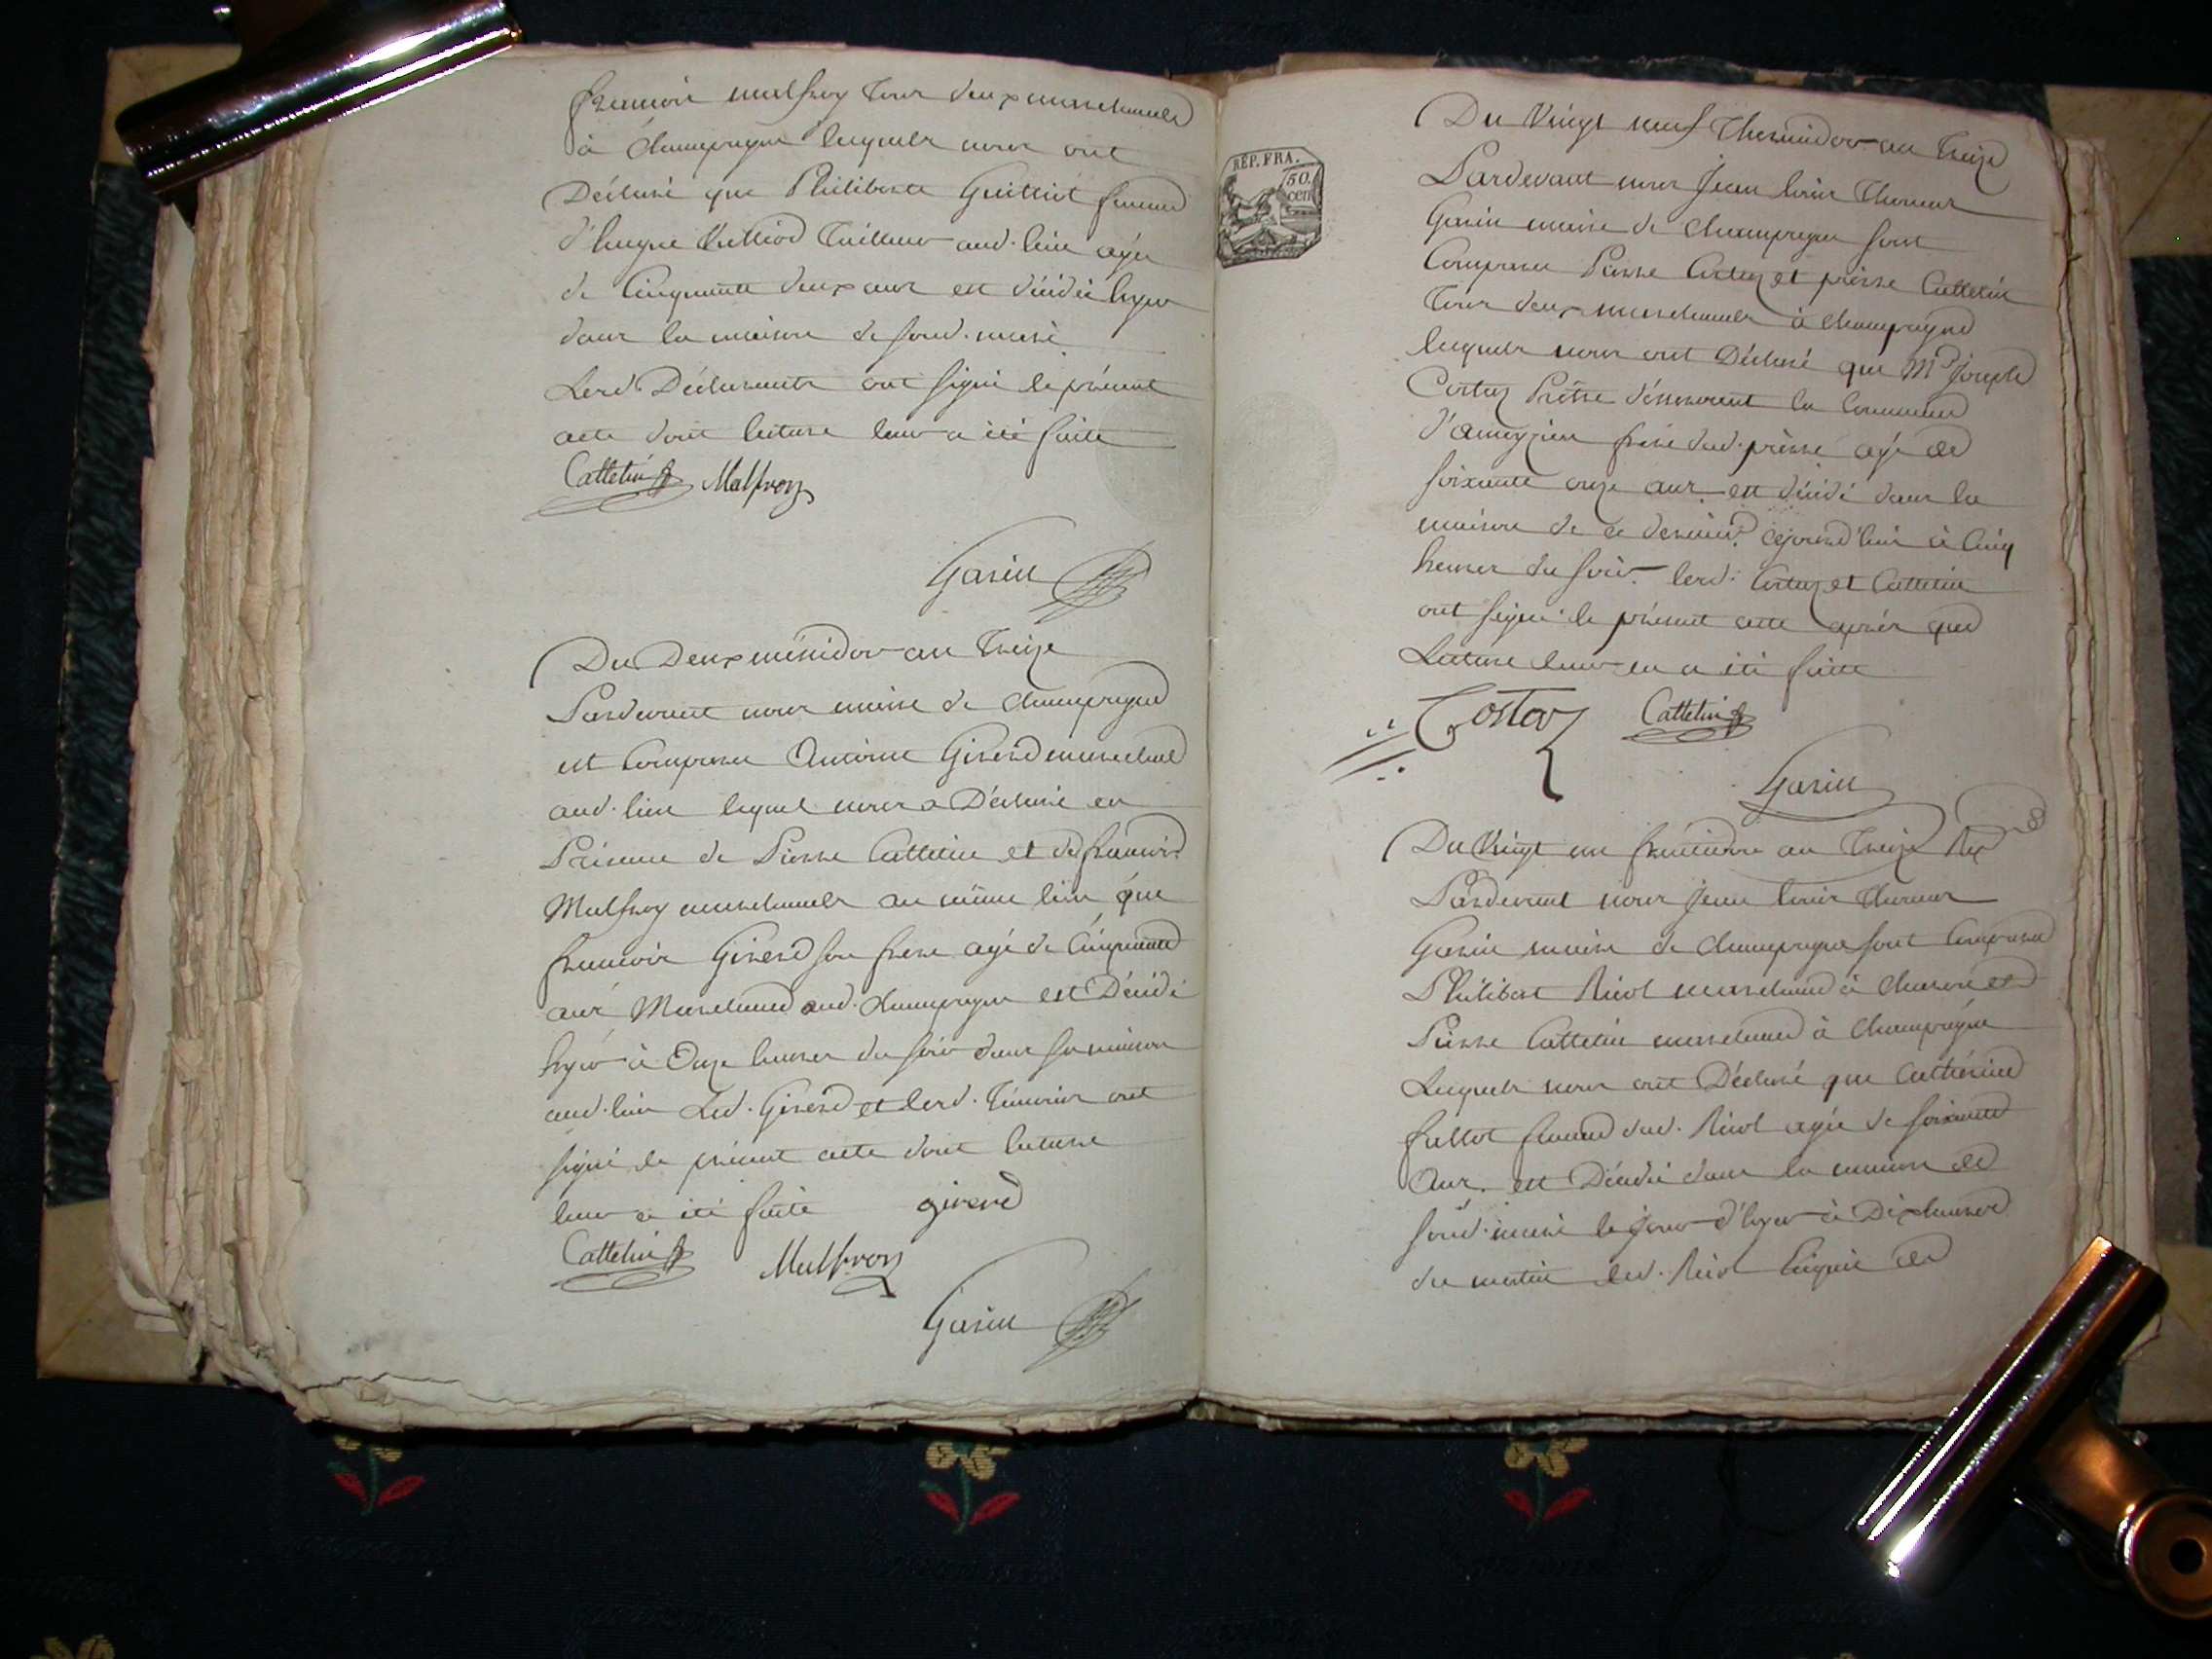 francois malfroy tous deux marchands
à champagne lesquels nous ont
Déclaré que Philiberte Guilliot femme
d'hugue Vulliod Tailleur aud. lieu agée
de Cinquante deux ans est décédée hyer
dans la maison de sond. mari
Lesd. Déclarants ont signé le présent
acte dont lecture leur a été faite
Cattelin Malfroy
Garin
Du Deux méssidor an Treize
Pardevant nous maire de champagne
est Comparu Antoine Girerd marechal
aud. lieu lequel nous a Déclaré en
Présence de Pierre Cattelin et de francois
Malfroy marchands au même lieu que
francois Girerd son frere agé de Cinquante
ans Marchand aud. champagne est Décédé
hyer à Onze heures du soir dans sa maison
aud. lieu Led. Girerd et lesd. Témoins ont
signé le présent acte dont lecture
leur a été faite girerd
Cattelin Malfroy
Garin
RÉP. FRA.
50
cen
Du Vingt neuf Thermidor an Treize
Pardevant nous Jean louis Thomas
Garin maire de champagne sont
Comparu Pierre Costaz et pierre Cattelin
Tous deux marchands à champagne
lesquels nous ont Déclaré que Mr Joseph
Costaz Prêtre désservant la Commune
d'ameyzieu frere dud. pierre agé de
soixante onze ans est décédé dans la
maison de ce dernier cejourd'hui à Cinq
heures du soir. lesd. Costaz et Cattelin
ont signé le présent acte après que
Lecture leur en a été faite
Costaz Cattelin
Garin
Du Vingt un fructidor an Treize
Pardevant nous Jean louis Thomas
Garin maire de champagne sont Comparu
Philibert Nicol marchand à et
Pierre Cattelin marchand à Champagne
Lesquels nous ont Déclaré que Cathérine
fallot femme dud. Nicol agée de soixante
Ans est Décédée dans la maison de
sond. mari le jour d'hyer à Dix heures
du matin led. Nicol Enquis de